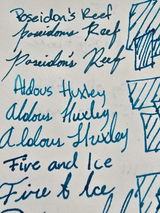 Poseidon's Reef
Poseidon's Reef
Poseidon's Reef
Aldous Huxley
Aldous Huxley
Aldous Huxley
Fire and Ice
Fire & Ice